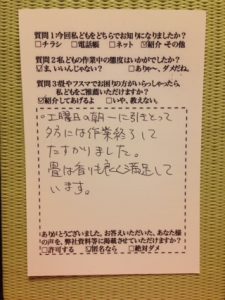 質問1今回私どもをどちらでお知りになりましたか?
□チラシ □電話帳 □ネット ☑紹介 その他
質問2私どもの作業中の態度はいかがでしたか?
☑ま、いいんじゃない? □ありゃ~、ダメだね。
質問3畳やフスマでお困りの方がいらっしゃったら、
私どもをご推薦いただけますか?
☑紹介してあげるよ □いや、教えない。
土曜日の朝一に引きとって
夕方には作業終了して
たすかりました。
畳は香りも良く心満足して
います。
ありがとうございました。お答えいただいた、あなた様
の声を、弊社資料等に掲載させていただけますか?
□許可する ☑匿名なら □絶対ダメ